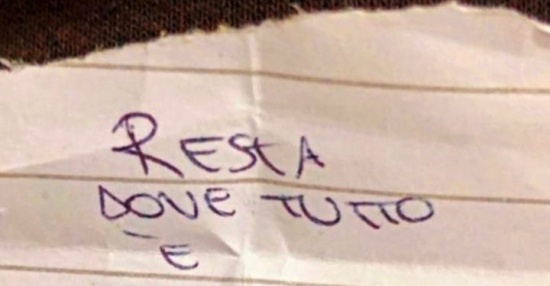 RESTA
DOVE TUTTO
È